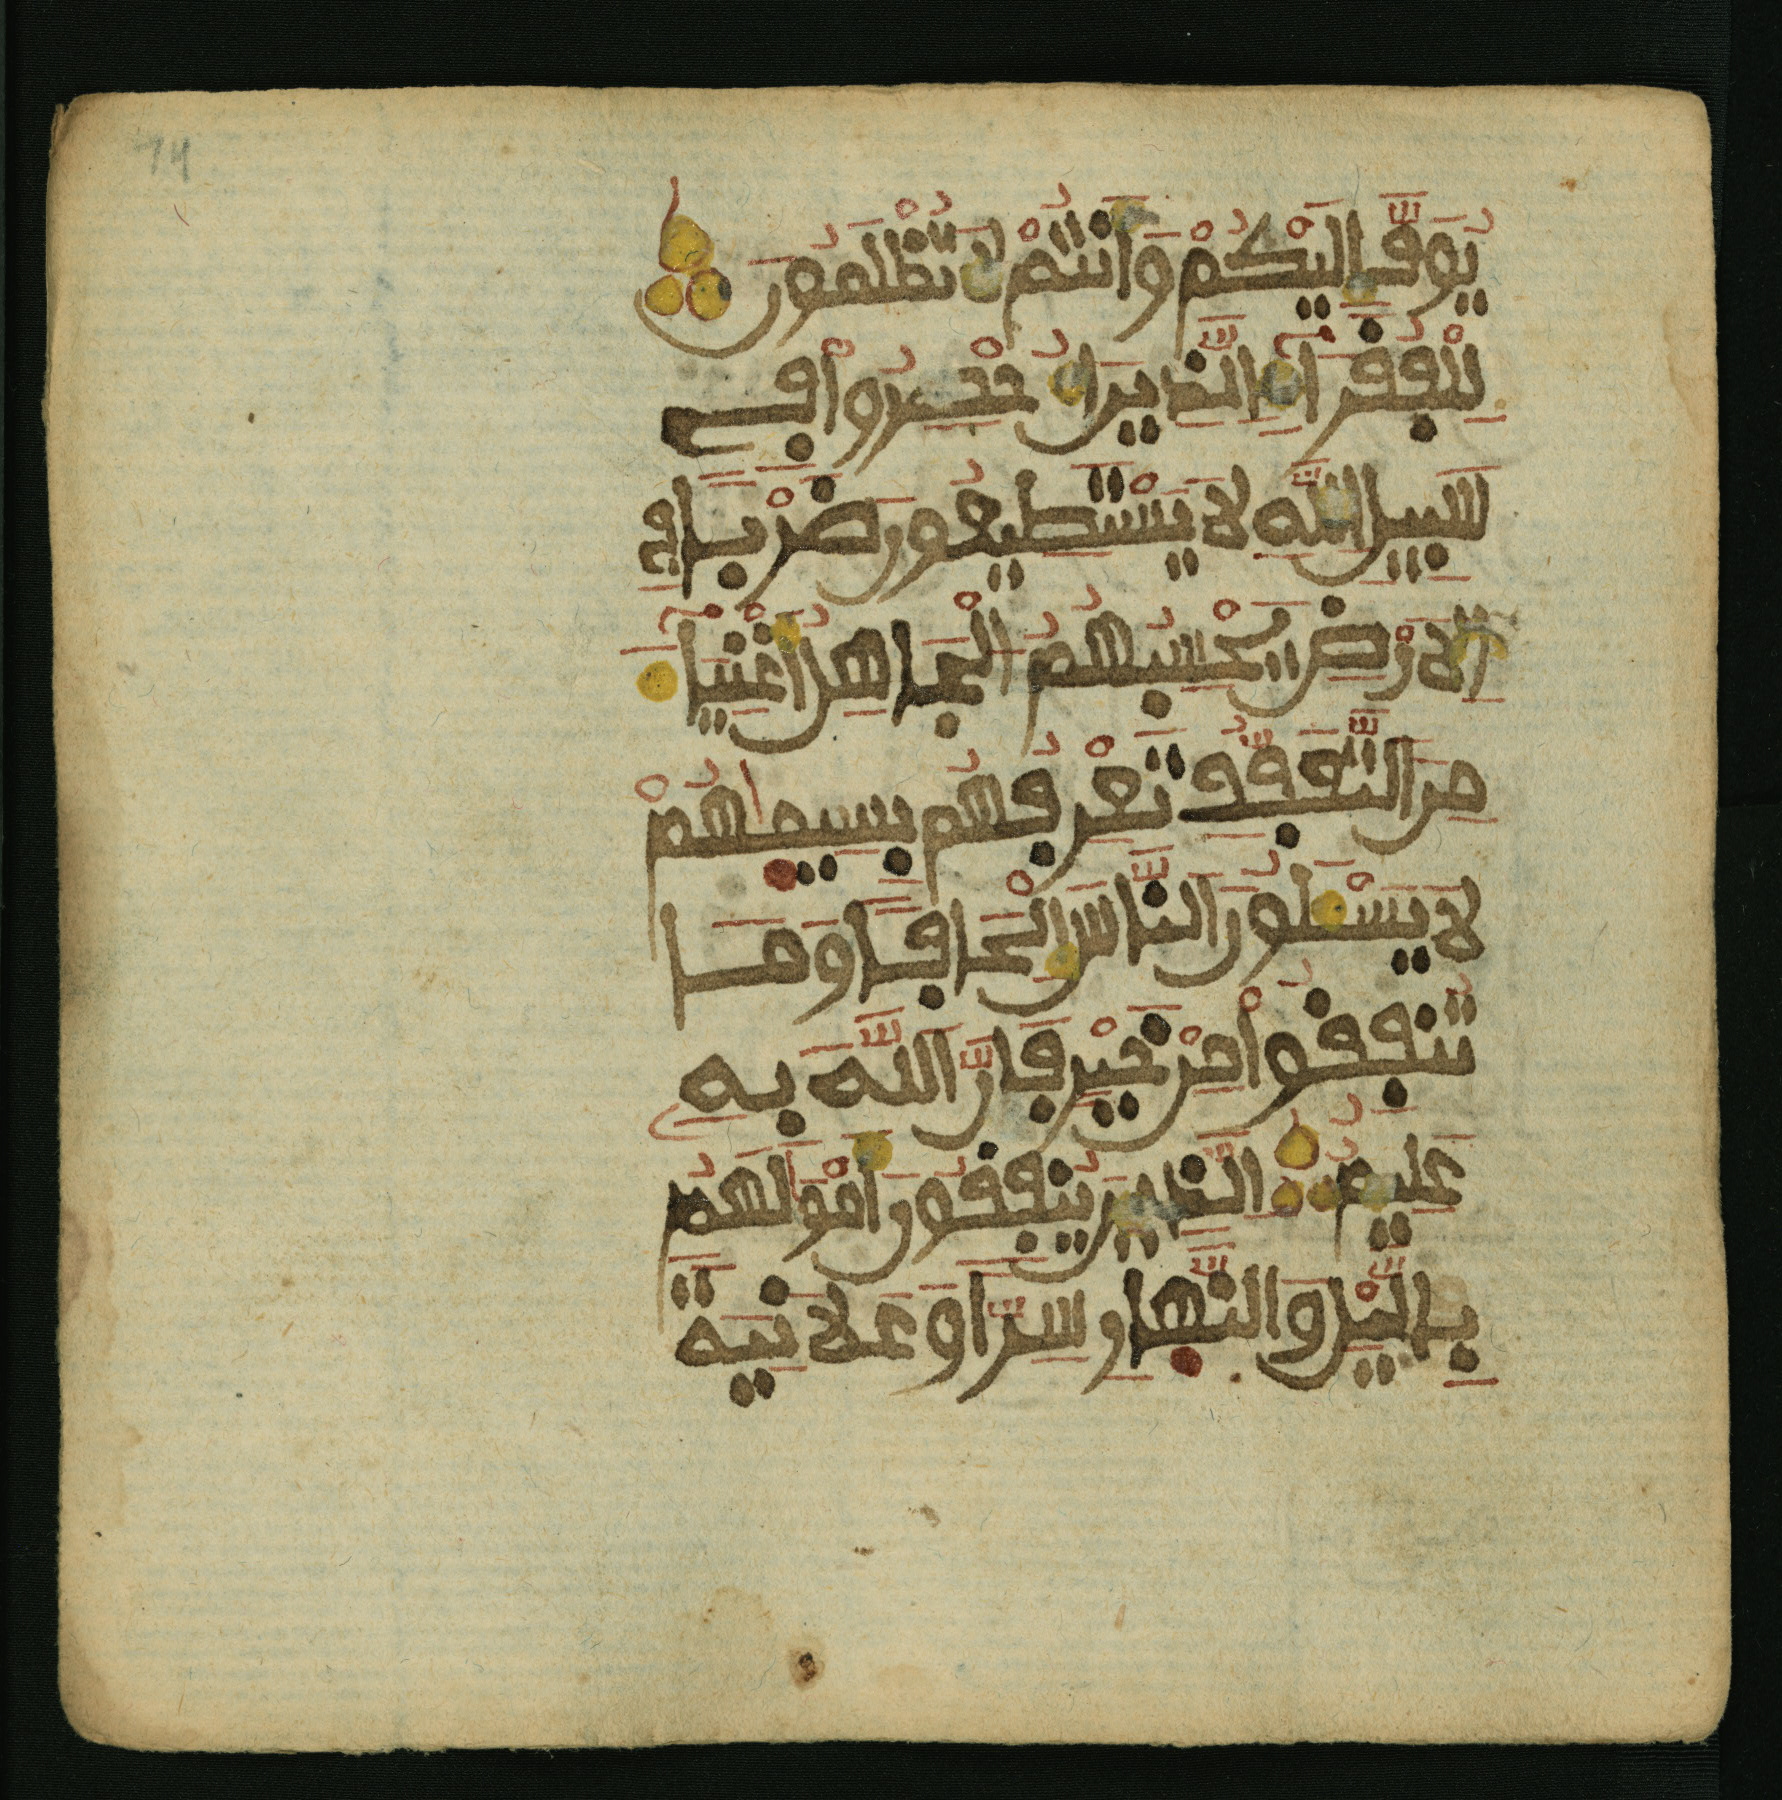 74
يُوَفَّ إِلَيْكُمْ وَأَنتُمْ لَا تُظْلَمُونَ
لِلْفُقَرَآءِ الَّذِينَ أُحْصِرُواْ فِي
سَبِيلِ اللَّهِ لَا يَسْتَطِيعُونَ ضَرْبًا فِي
الَارْضِ يَحْسِبُهُمُ الْجَاهِلُ أَغْنِيَآءَ
مِنَ التَّعَفُّفِ تَعْرِفُهُم بِسِيمٰهُمْ
لَا يَسْـَٔلُونَ النَّاسَ إِلْحَافًا وَمَا
تُنفِقُواْ مِنْ خَيْرٍ فَإِنَّ اللَّهَ بِهِ
عَلِيمٌ الَّذِينَ يُنفِقُونَ أَمْوَٰلَهُم
بِالَّيْلِ وَالنَّهَارِ سِرًّا وَعَلَانِيَةً